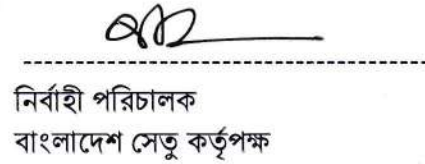 নির্বাহী পরিচালক
বাংলাদেশ সেতু কর্তৃপক্ষ